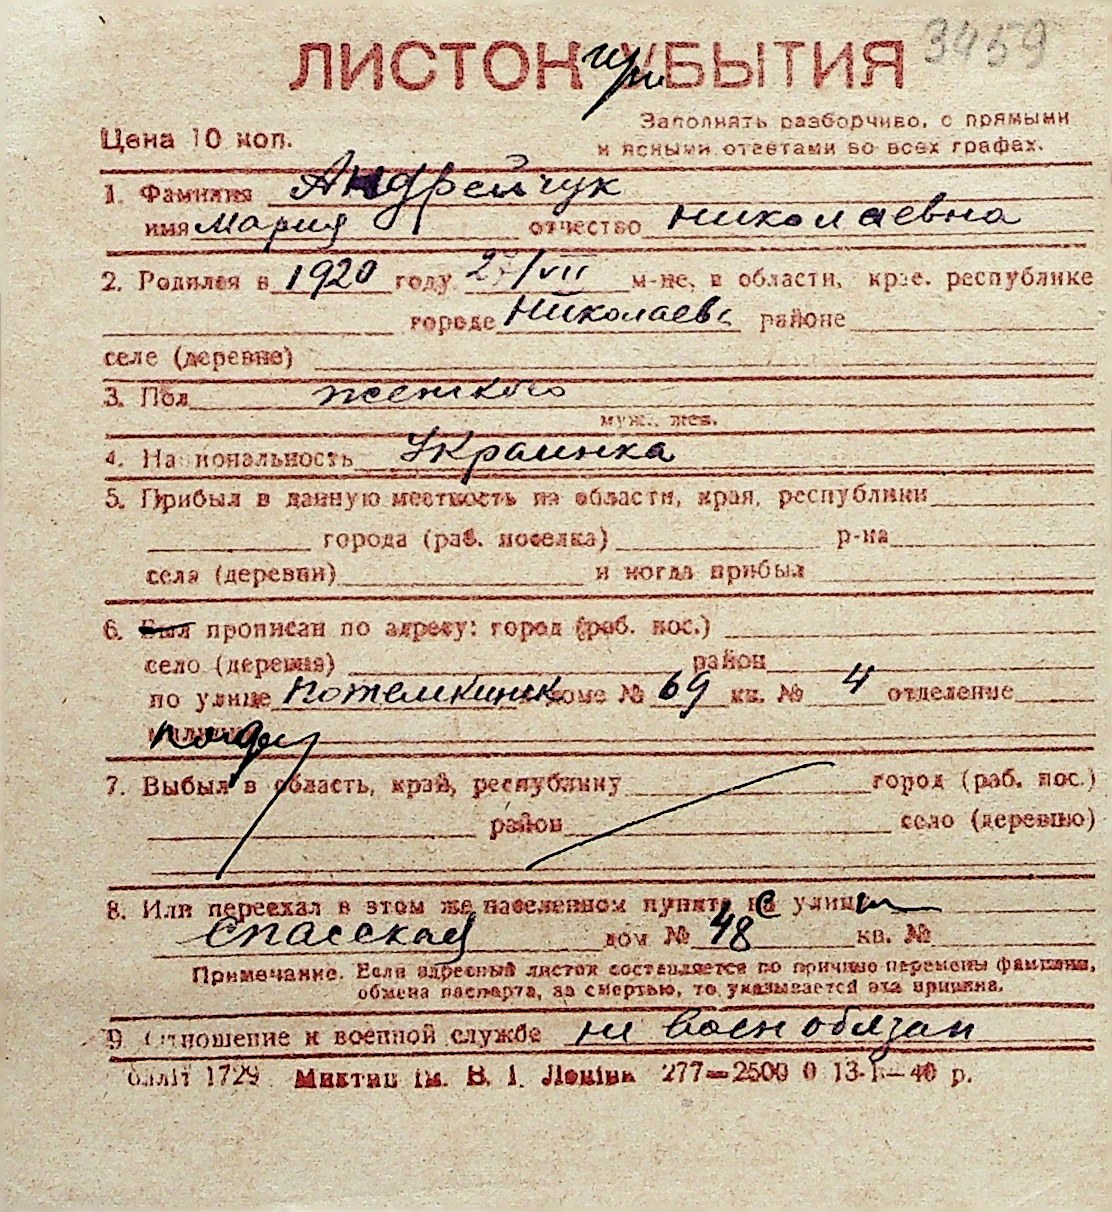 3459
ЛИСТОК при УБЫТИЯ
Заполнять разборчиво, с прямыми
Цена 10 коп.
и ясными ответами во всех графах.
1. Фамилия Андрейчук
имя Мария отчество Николаевна
2. Родился в 1920 году 2 /VII м-не, в области, крае. республике
городе Николаев районе
селе (деревне)
3. Пол женского
муж., жен.
4. Национальность Украинка
5. Прибыл в данную местность из области, края, республики
города (раб. поселка) р-на
села (деревни) и когда прибыл
6. Был прописан по адресу: город (раб. пос.)
село (деревня) район
по улице Потемкинск доме № 69 кв. № 4 отделение
7. Выбыл в область, край, республику город (раб. пос.)
район село (деревню)
8. Или переехал в этом же населенном пункте с улицы
Спасская дом № 48 кв. №
Примечание. Если адресный листок составляется по причине перемены фамилии,
обмена паспорта, за смертью, то указывается эта причина.
9 Отношение к военной службе не военобязан
облліт 1729 Миктип ім. В. І. Леніна 277—2500 0 13-I—40 р.